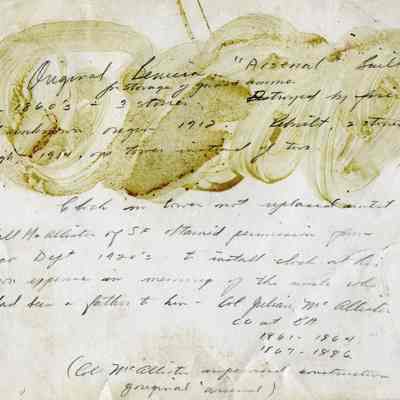 Original Benicia "Arsenal" buil
for storage of guns & ammo.
1860's - 3 stories. Destroyed by fire
unknown origin 1912. Rebuilt, 2 stories
1914, one tower instead of two
Clock in tower not replaced until
McAllister of San permission from
Dept 1920's to install clock at his
own expense in memory of the uncle who
had been a father to him - Col Julian McAllister
CO at BA
1861 - 1864
1867 - 1886
(Col McAllister supervised construction
of original arsenal)